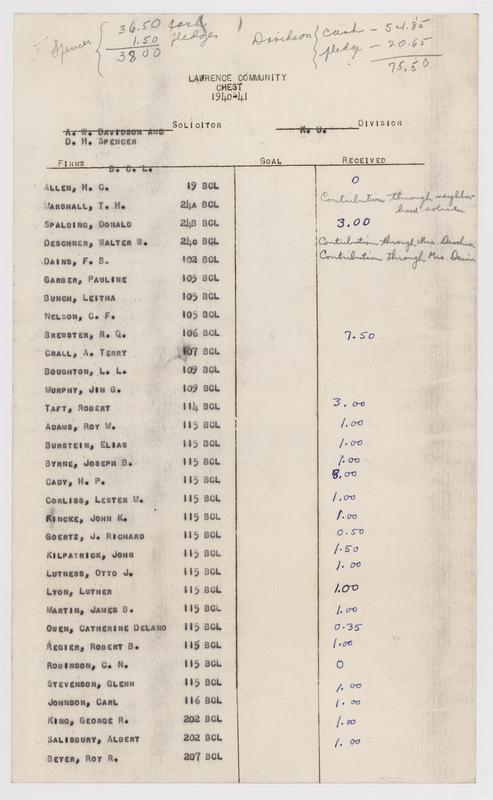 Spencer { 36.50 Cash
1.50 Pledges
38.00
Davidson { Cash - 54.85
pledge - 20.65
75.50
LAWRENCE COMMUNITY
CHEST
1940-41
A. W. DAVIDSON AND SOLICITOR K. U. DIVISION
D. H. SPENCER
FIRMS B. C. L. GOAL RECEIVED
ALLEN, H. C. 19 BCL 0
MARSHALL, T. H. 24A BCL Contribution through neighborhood solicitor
SPALDING, DONALD 24B BCL 3.00
DESCHNER, WALTER W. 240 BCL Contribution through Mrs. Deschner
DAINS, F. B. 102 BCL Contribution through Mrs. Dains
GARBER, PAULINE 105 BCL
BUNCH, LEITHA 105 BCL
NELSON, C. F. 105 BCL
BREWSTER, R. Q. 106 BCL 7.50
CRALL, A. TERRY 107 BCL
BOUGHTON, L. L. 109 BCL
MURPHY, JIM G. 109 BCL
TAFT, ROBERT 114 BCL 3.00
ADAMS, ROY M. 115 BCL 1.00
BURSTEIN, ELIAS 115 BCL 1.00
BYRNE, JOSEPH B. 115 BCL 1.00
CADY, H. P. 115 BCL 8.00
CORLISS, LESTER M. 115 BCL 1.00
FINCKE, JOHN K. 115 BCL 1.00
GOERTZ, J. RICHARD 115 BCL 0.50
KILPATRICK, JOHN 115 BCL 1.50
LUTNESS, OTTO J. 115 BCL 1.00
LYON, LUTHER 115 BCL 1.00
MARTIN, JAMES B. 115 BCL 1.00
OWEN, CATHERINE DELANO 115 BCL 0.35
REGIER, ROBERT B. 115 BCL 1.00
ROBINSON, C. N. 115 BCL 0
STEVENSON, GLENN 115 BCL 1.00
JOHNSON, CARL 116 BCL 1.00
KING, GEORGE R. 202 BCL 1.00
SALISBURY, ALBERT 202 BCL 1.00
BEYER, ROY R. 207 BCL